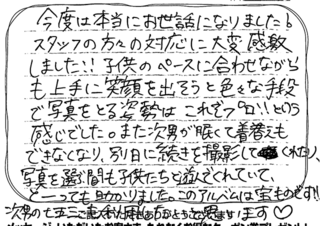 今度は本当にお世話になりました♭
スタッフの方々の対応に大変感激
しました!! 子供のペースに合わせながら
も上手に笑顔を出そうと色々な手段
で写真をとる姿勢は これぞプロ!!という
感じでした。また次男が眠くて着替えも
できなくなり、別日に続きを撮影してくれたり、
写真を選ぶ間も子供たちと遊んでくれていて、
どーっても助かりました。このアルバムは宝ものです!!
次男の七五三で
思います♡